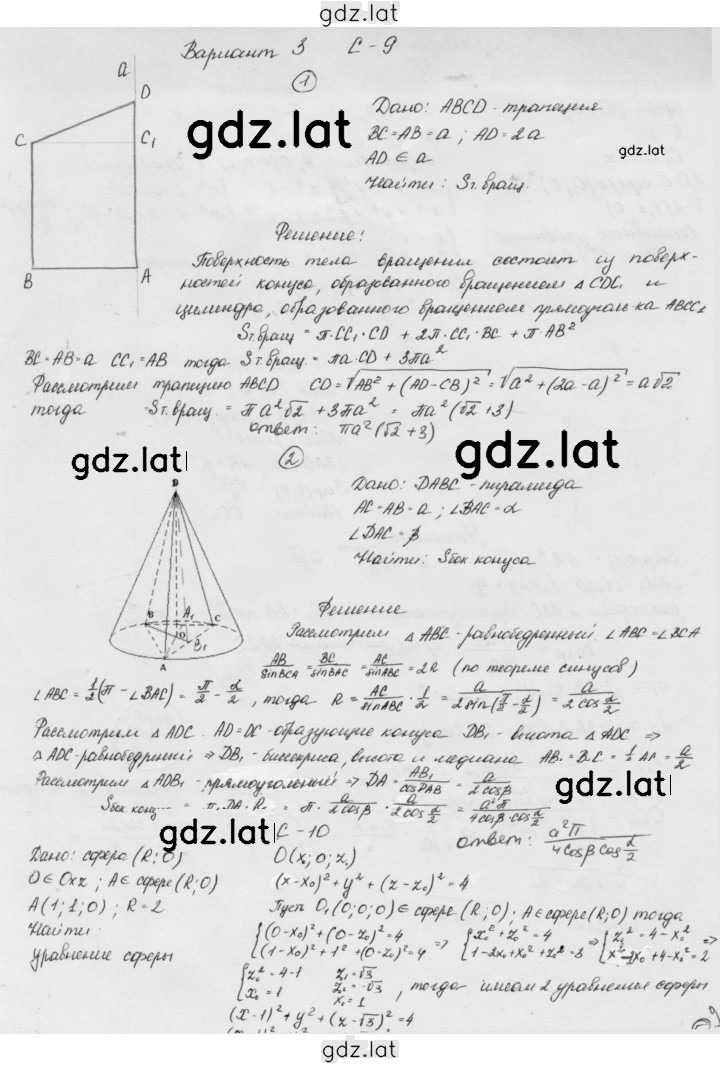 gdz.lat
Вариант 3 С-9
a
1
D
C
C₁
B
A
Дано: ABCD - трапеция
BC = AB = a ; AD = 2a
AD ∈ a
Найти: Sт.вращ.
gdz.lat
gdz.lat
Решение:
Поверхность тела вращения состоит из поверх-
ностей конуса, образованного вращением △CDC₁ и
цилиндра, образованного вращением прямоуголь-ка ABCC₁
Sт.вращ = π·CC₁·CD + 2π·CC₁·BC + π·AB²
BC = AB = a CC₁ = AB тогда Sт.вращ. = πa·CD + 3πa²
Рассмотрим трапецию ABCD CD = √(AB² + (AD-CB)²) = √(a² + (2a-a)²) = a√2
тогда Sт.вращ. = πa²√2 + 3πa² = πa²(√2 + 3)
ответ: πa²(√2 + 3)
gdz.lat
gdz.lat
2
D
B
A₁
C
O
B₁
A
Дано: DABC - пирамида
AC = AB = a ; ∠BAC = α
∠DAC = β
Найти: Sбок конуса
Решение
Рассмотрим △ABC - равнобедренный. ∠ABC = ∠BCA
AB/sinBCA = BC/sinBAC = AC/sinABC = 2R (по теореме синусов)
∠ABC = 1/2(π - ∠BAC) = π/2 - α/2 , тогда R = AC/sinABC · 1/2 = a/2sin(π/2 - α/2) = a/2cos α/2
Рассмотрим △ADC. AD = DC - образующие конуса DB₁ - высота △ADC ⇒
△ADC - равнобедренный ⇒ DB₁ - биссектриса, высота и медиана AB₁ = B₁C = 1/2 AC = a/2
Рассмотрим △ADB₁ - прямоугольный ⇒ DA = AB₁/cosDAB = a/2cosβ
Sбок кону... = π·DA·R = π · a/2cosβ · a/2cos α/2 = a²π/4cosβ·cos α/2
gdz.lat
gdz.lat
ответ: a²π/4cosβ cos α/2
С-10
Дано: сфера (R; O)
O ∈ Oxz ; A ∈ сфере (R; O)
A (1; 1; 0) ; R = 2
Найти:
уравнение сферы
O(x₀; 0; z₀)
(x-x₀)² + y² + (z-z₀)² = 4
Пусть O₁(0; 0; 0) ∈ сфере (R; O) ; A ∈ сфере (R; O) тогда
{(0-x₀)² + (0-z₀)² = 4 ⇒ {x₀² + z₀² = 4 ⇒ {z₀² = 4 - x₀²
{(1-x₀)² + 1² + (0-z₀)² = 4 {1-2x₀ + x₀² + z₀² = 3 {x₀² - 2x₀ + 4 - x₀² = 2 ⇒
{z₀² = 4-1 z₁ = √3
{x₀ = 1 z₂ = -√3
x₁ = 1
, тогда имеем 2 уравнения сферы
(x-1)² + y² + (z-√3)² = 4
gdz.lat